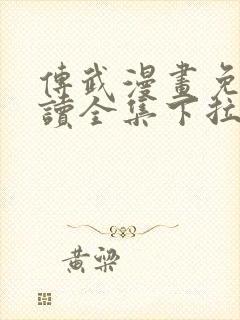 傳武漫畫免
讀全集下拉
黃梁